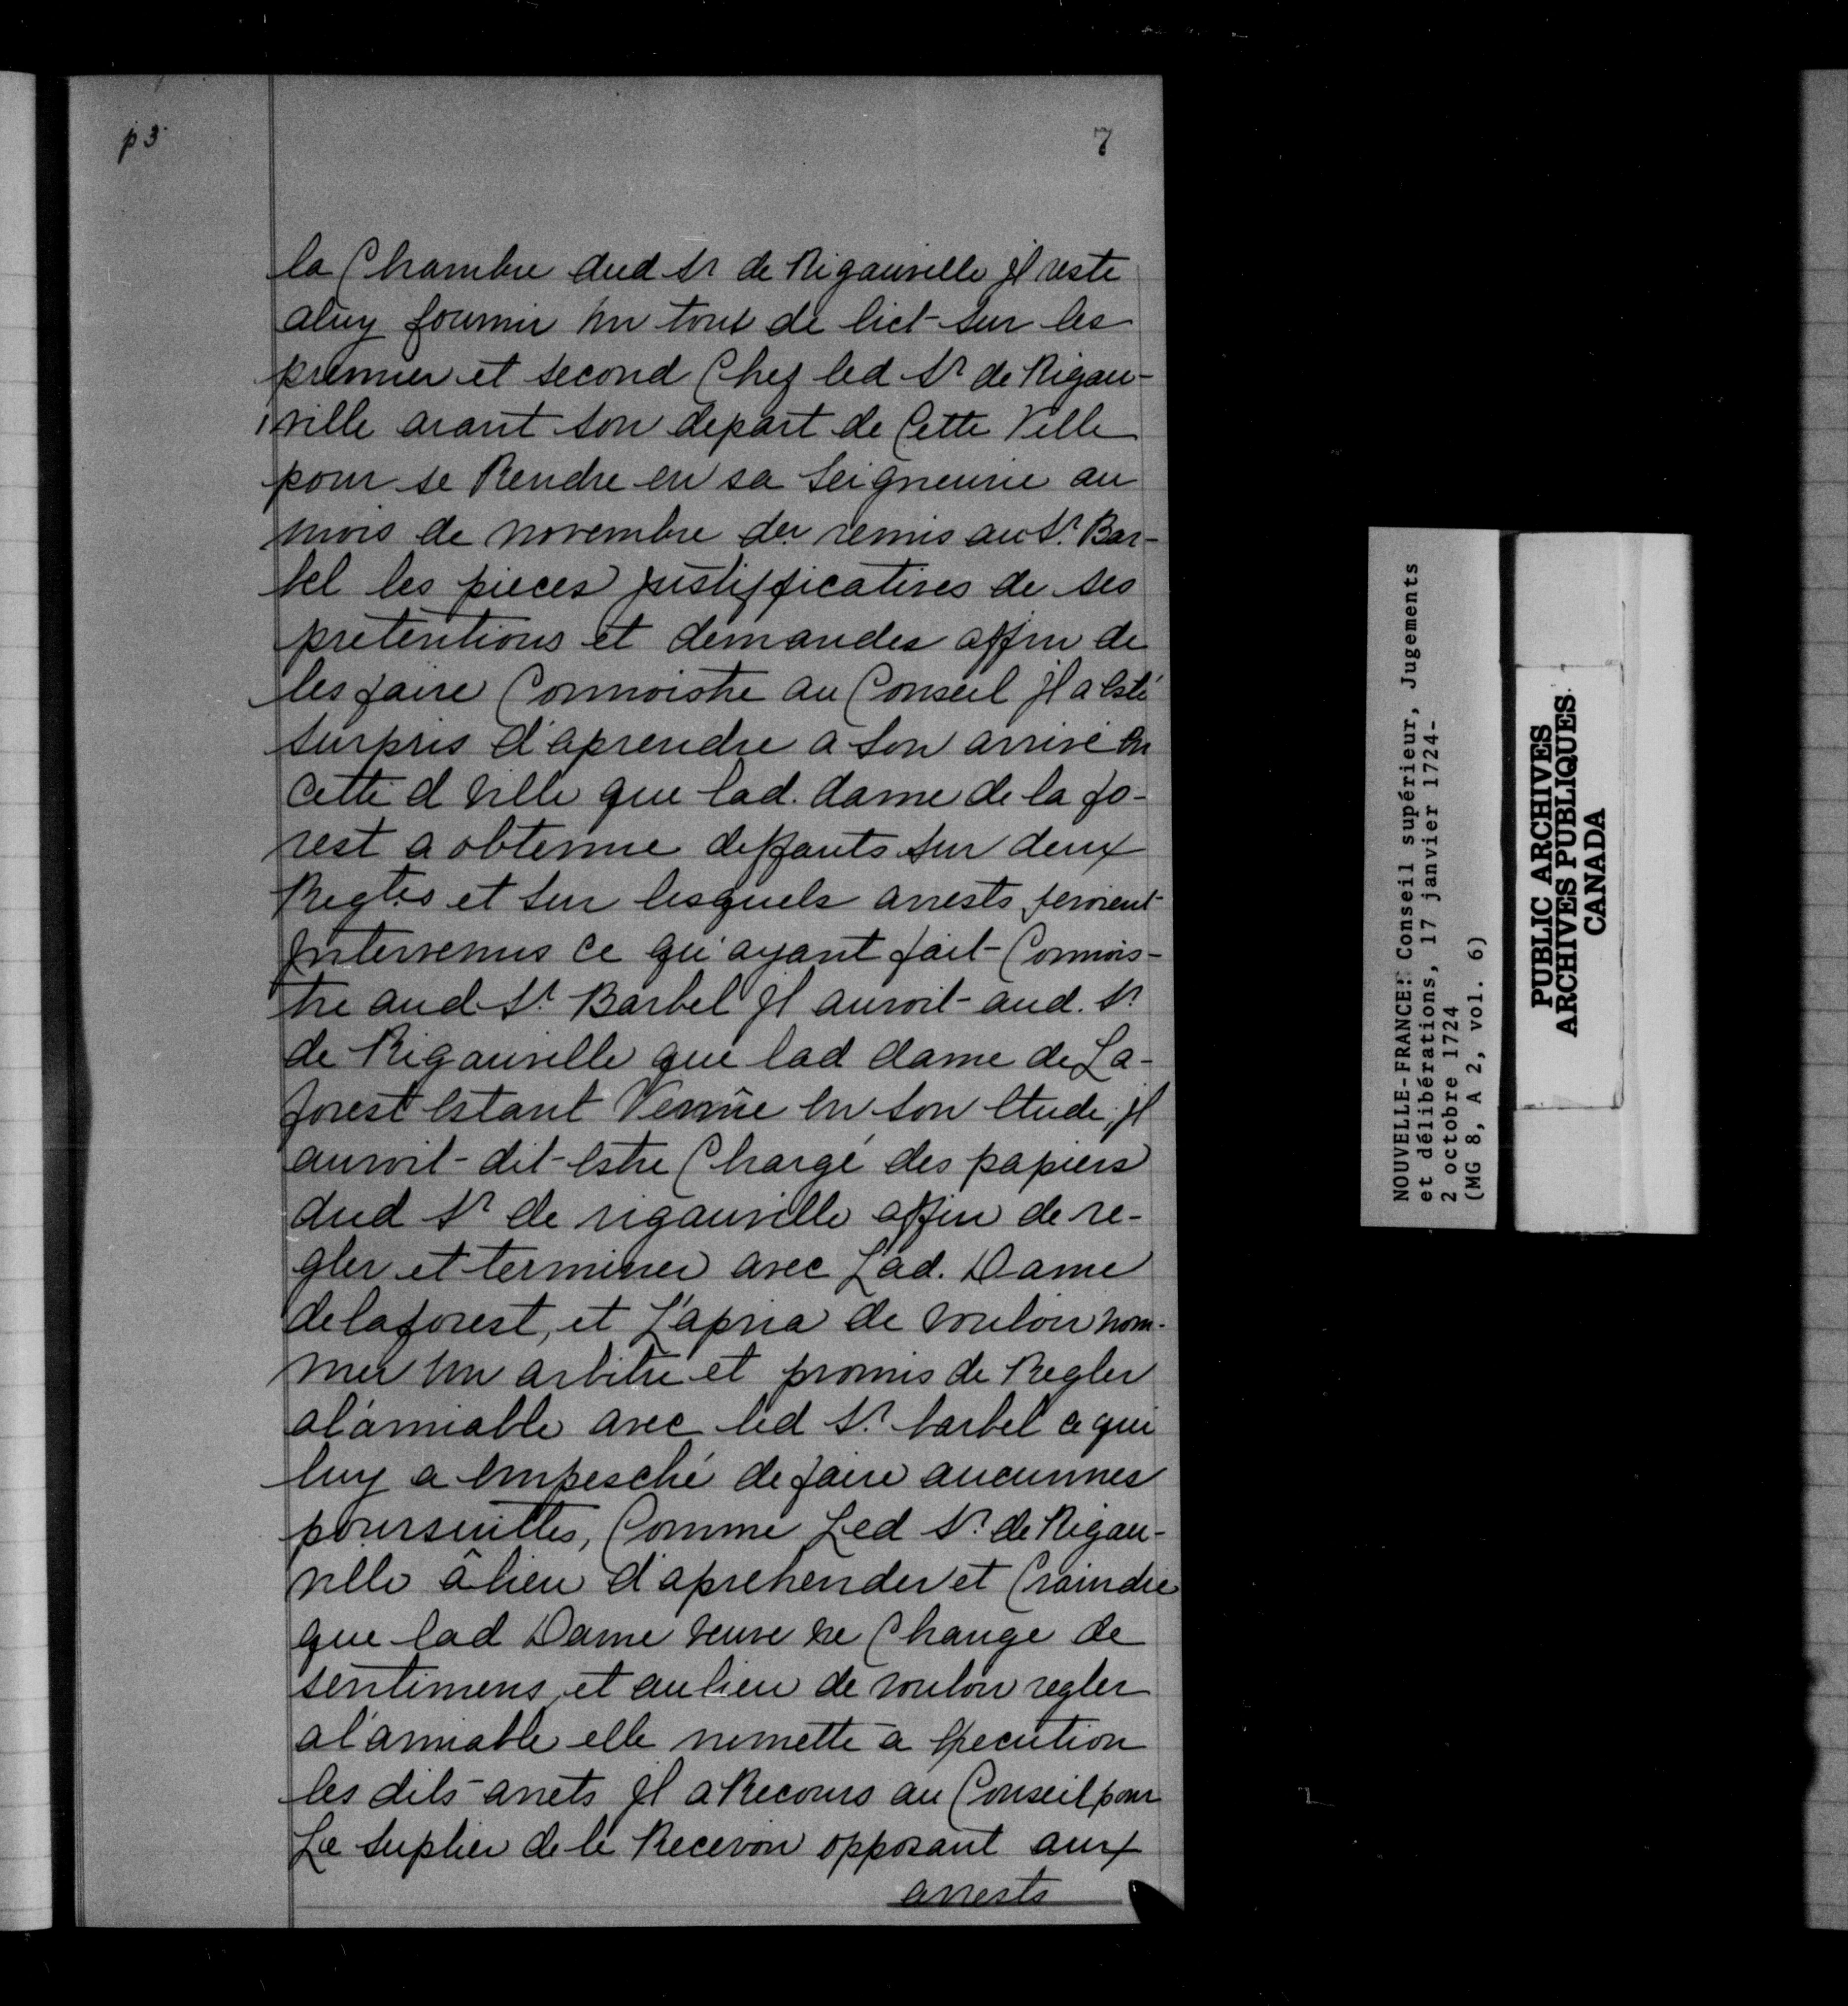 p 3
7
la Chambre dud Sr de Rigauville Jl reste
aluy fournir un tour de lict sur les
premier et second Chef led Sr de Rigau-
ville avant son depart de Cette Ville
pour se Rendre en sa Seigneurie au
mois de novembre der remis au Sr. Bar-
bel les pieces justifficatives de ses
pretentions et demandes affin de
les faire Connoistre au Conseil Jl a esté
surpris d'aprendre a son arrivé en
cette d ville que lad. dame de la fo-
rest a obtenue deffauts sur deux
Regtes et sur lesquels arrests seroient
Jntervenus ce qu'ayant fait Connois-
tre aud Sr Barbel Jl auroit aud. Sr
de Rigauville que lad dame de La-
forest estant Venüe en son etude, Jl
auroit dit estre Chargé des papiers
dud Sr de rigauville affin de re-
gler et terminer avec Lad. Dame
delaforest, et L'apria de vouloir nom-
mer un arbitre et promis de Regler
al'amiable avec led Sr. barbel ce qui
luy a empesché de faire aucunnes
poursuittes, Comme Led Sr. de Rigau-
ville â lieu d'aprehender et Craindre
que lad Dame veuve ne Change de
sentimens et aulieu de vouloir regler
al'amiable elle nemette a execution
les dits arrets Jl a Recours au Conseil pour
Le Suplier de le Recevoir opposant aux
arrests
NOUVELLE-FRANCE: Conseil supérieur, Jugements
et délibérations, 17 janvier 1724-
2 octobre 1724
(MG 8, A 2, vol. 6)
PUBLIC ARCHIVES
ARCHIVES PUBLIQUES
CANADA